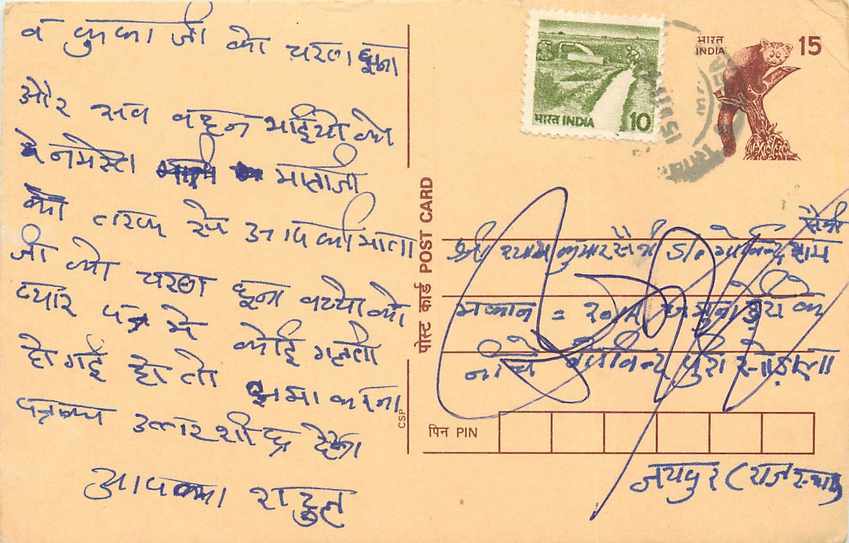 व फुफा जी को चरण छूना
और सब बहन भाईयो को
मे नमस्ते माताजी
की तरफ से आपकी माता
जी को चरण छूना बच्चो को
प्यार पत्र मे कोई गलती
हो गई हो तो क्षमा करना
पत्रका उत्तर शीघ्र देना
आपका राहुल
CSP
पोस्ट कार्ड POST CARD
भारत INDIA 10
भारत
INDIA
15
सैनी
श्री श्याम कुमार सैनी S/o गोविन्द राम
मकान = जमुना डेरी के
नीचे गोविन्द पुरी सोडाला
पिन PIN
जयपुर (राजस्थान)